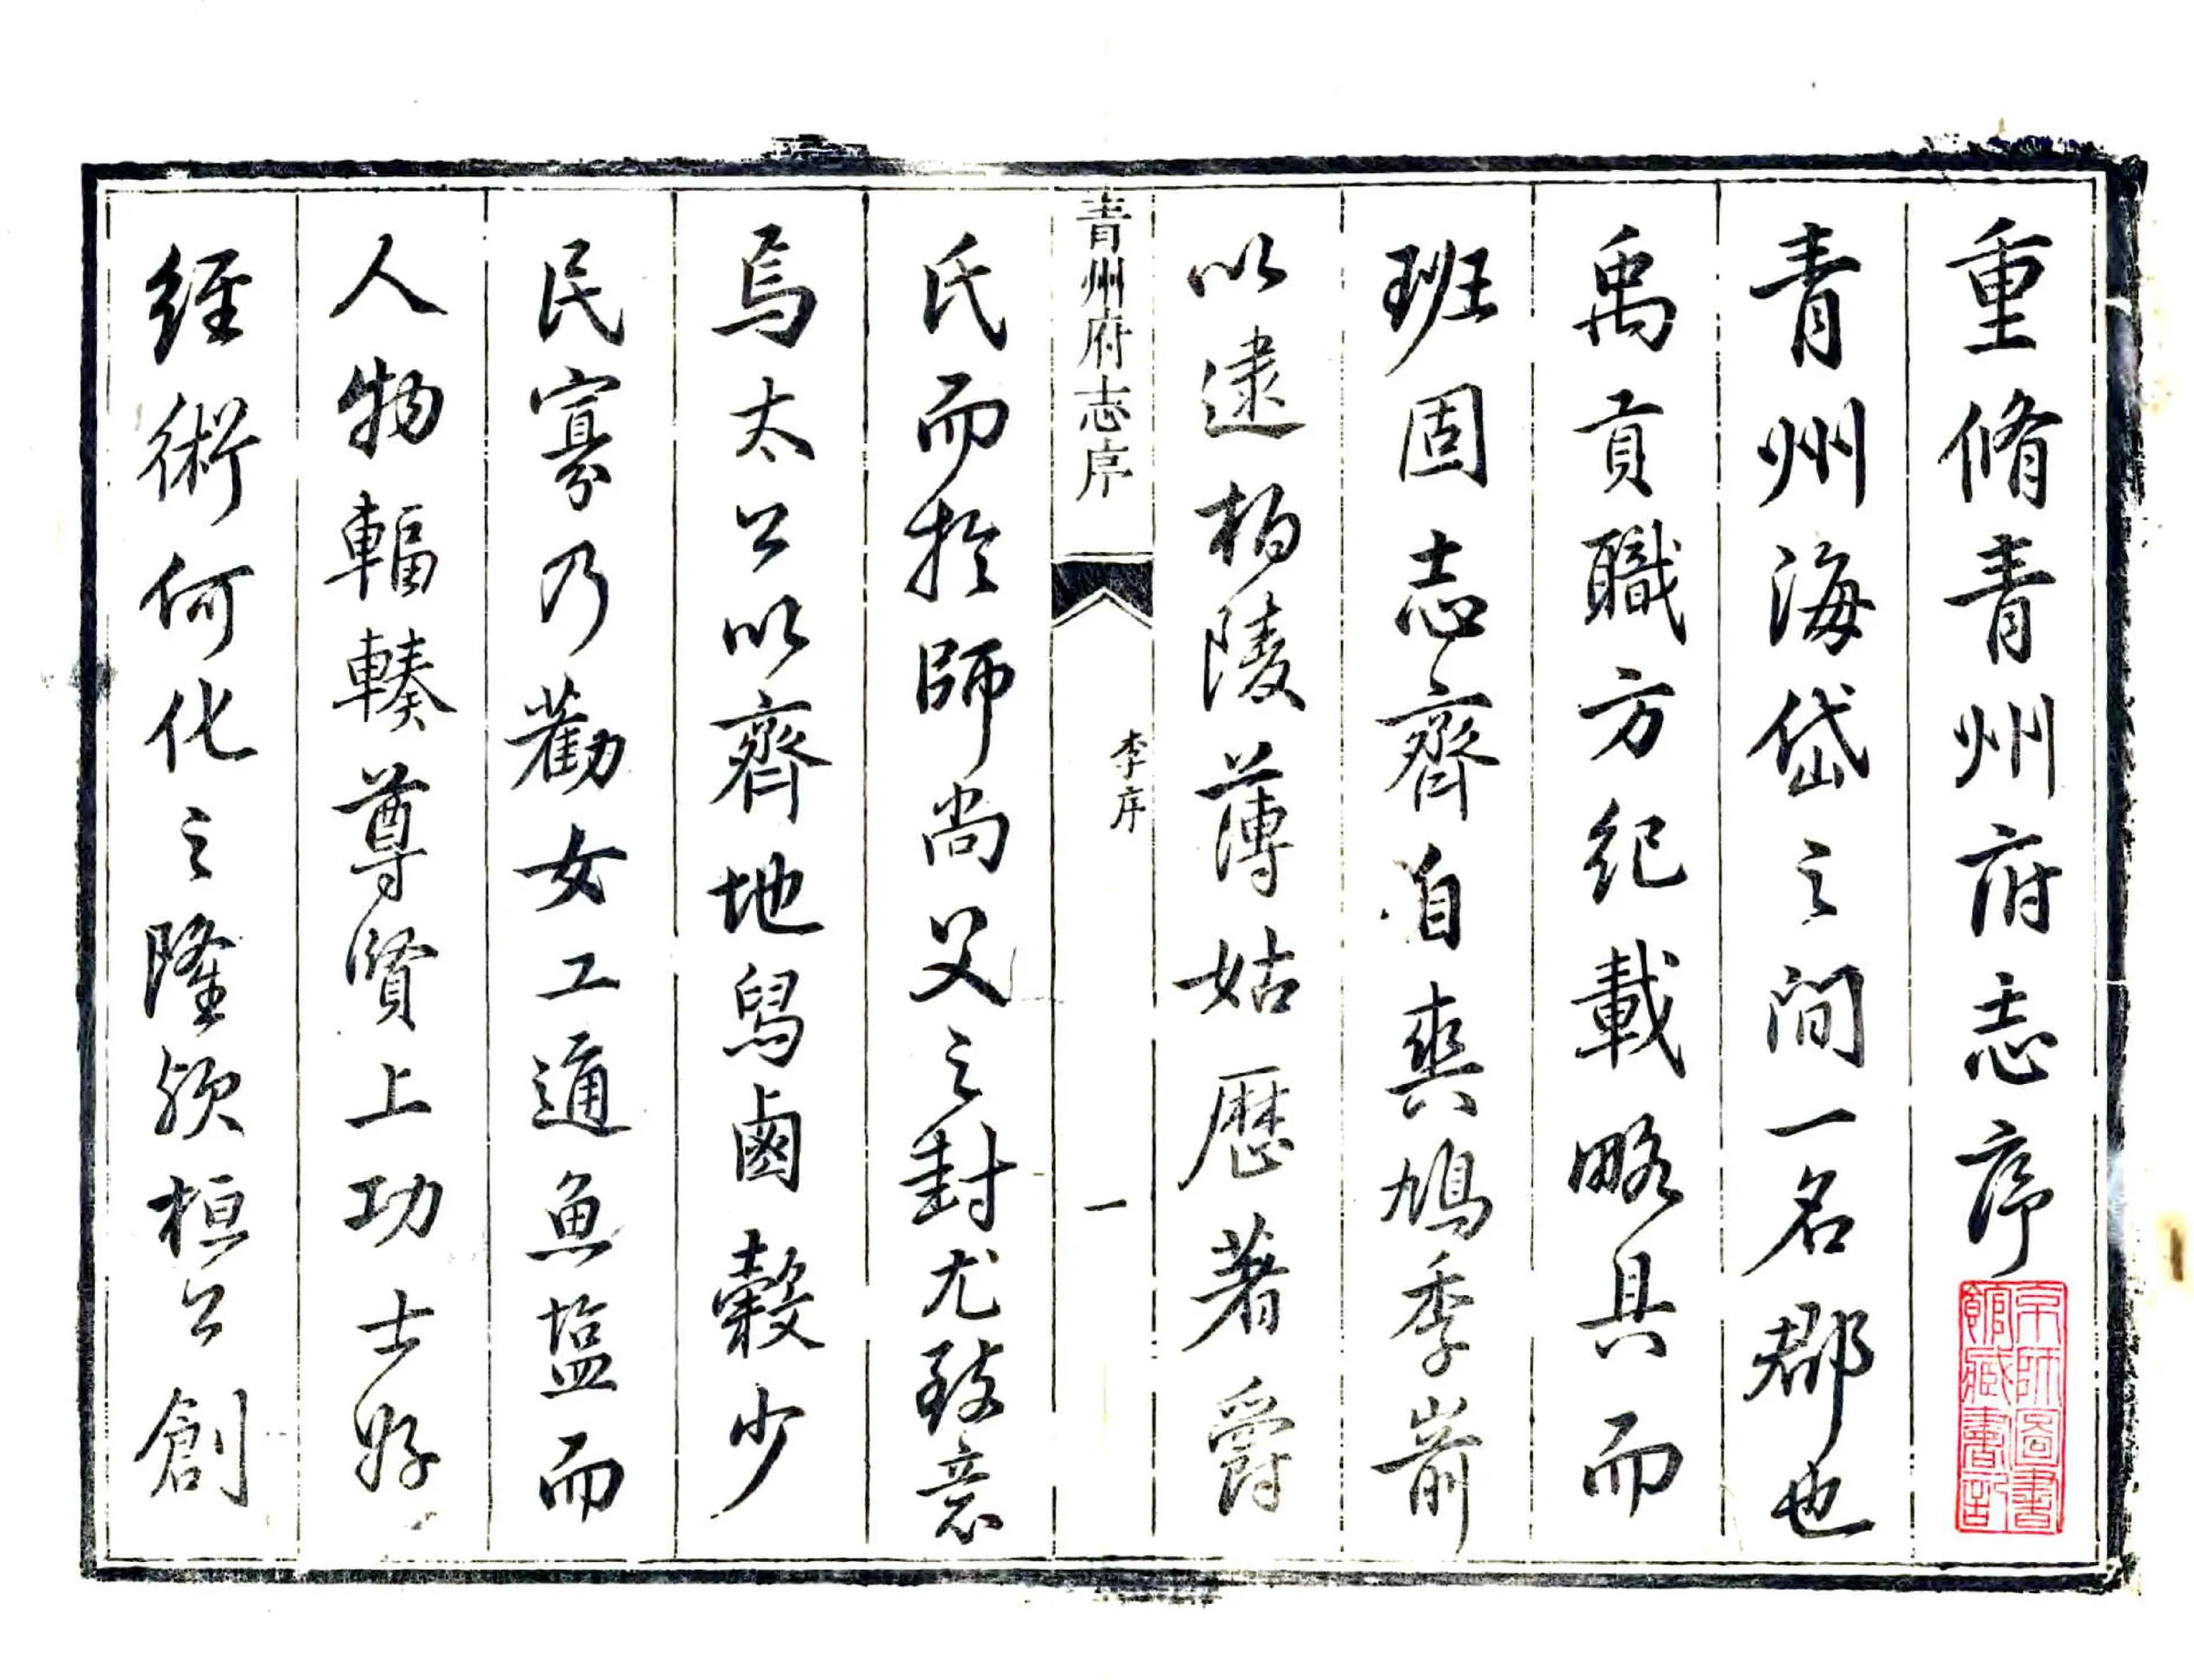 重脩青州府志序
青州海岱之間一名郡也
禹貢職方紀載略具而
班固志齊自爽鳩季崱
以逮柏陵薄姑歷著爵
青州府志序
李序
一
氏而於師尚父之封尤致意
焉太公以齊地舄鹵穀少
民寡乃勸女工通魚塩而
人物輻輳尊賢上功士好
經術何化之隆歟桓公創
京師圖書
館藏書記